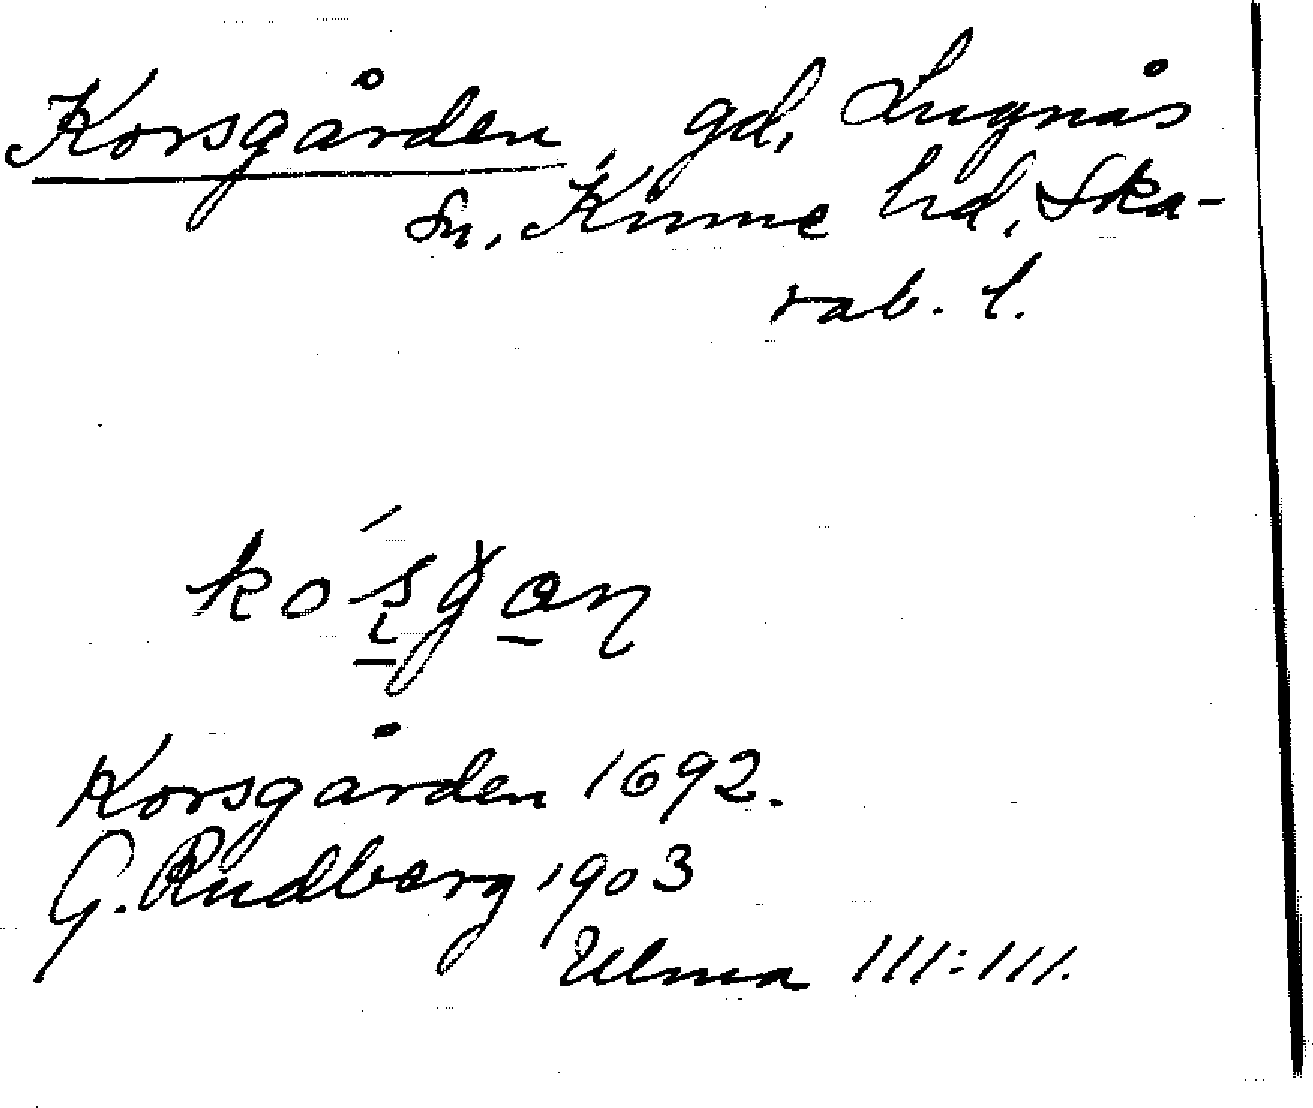 Korsgården, gd, Lugnås
sn, Kinne hd, Ska-
rab. l.
Korsgården 1692.
G. Rudberg 1903
Ulma 111:111.